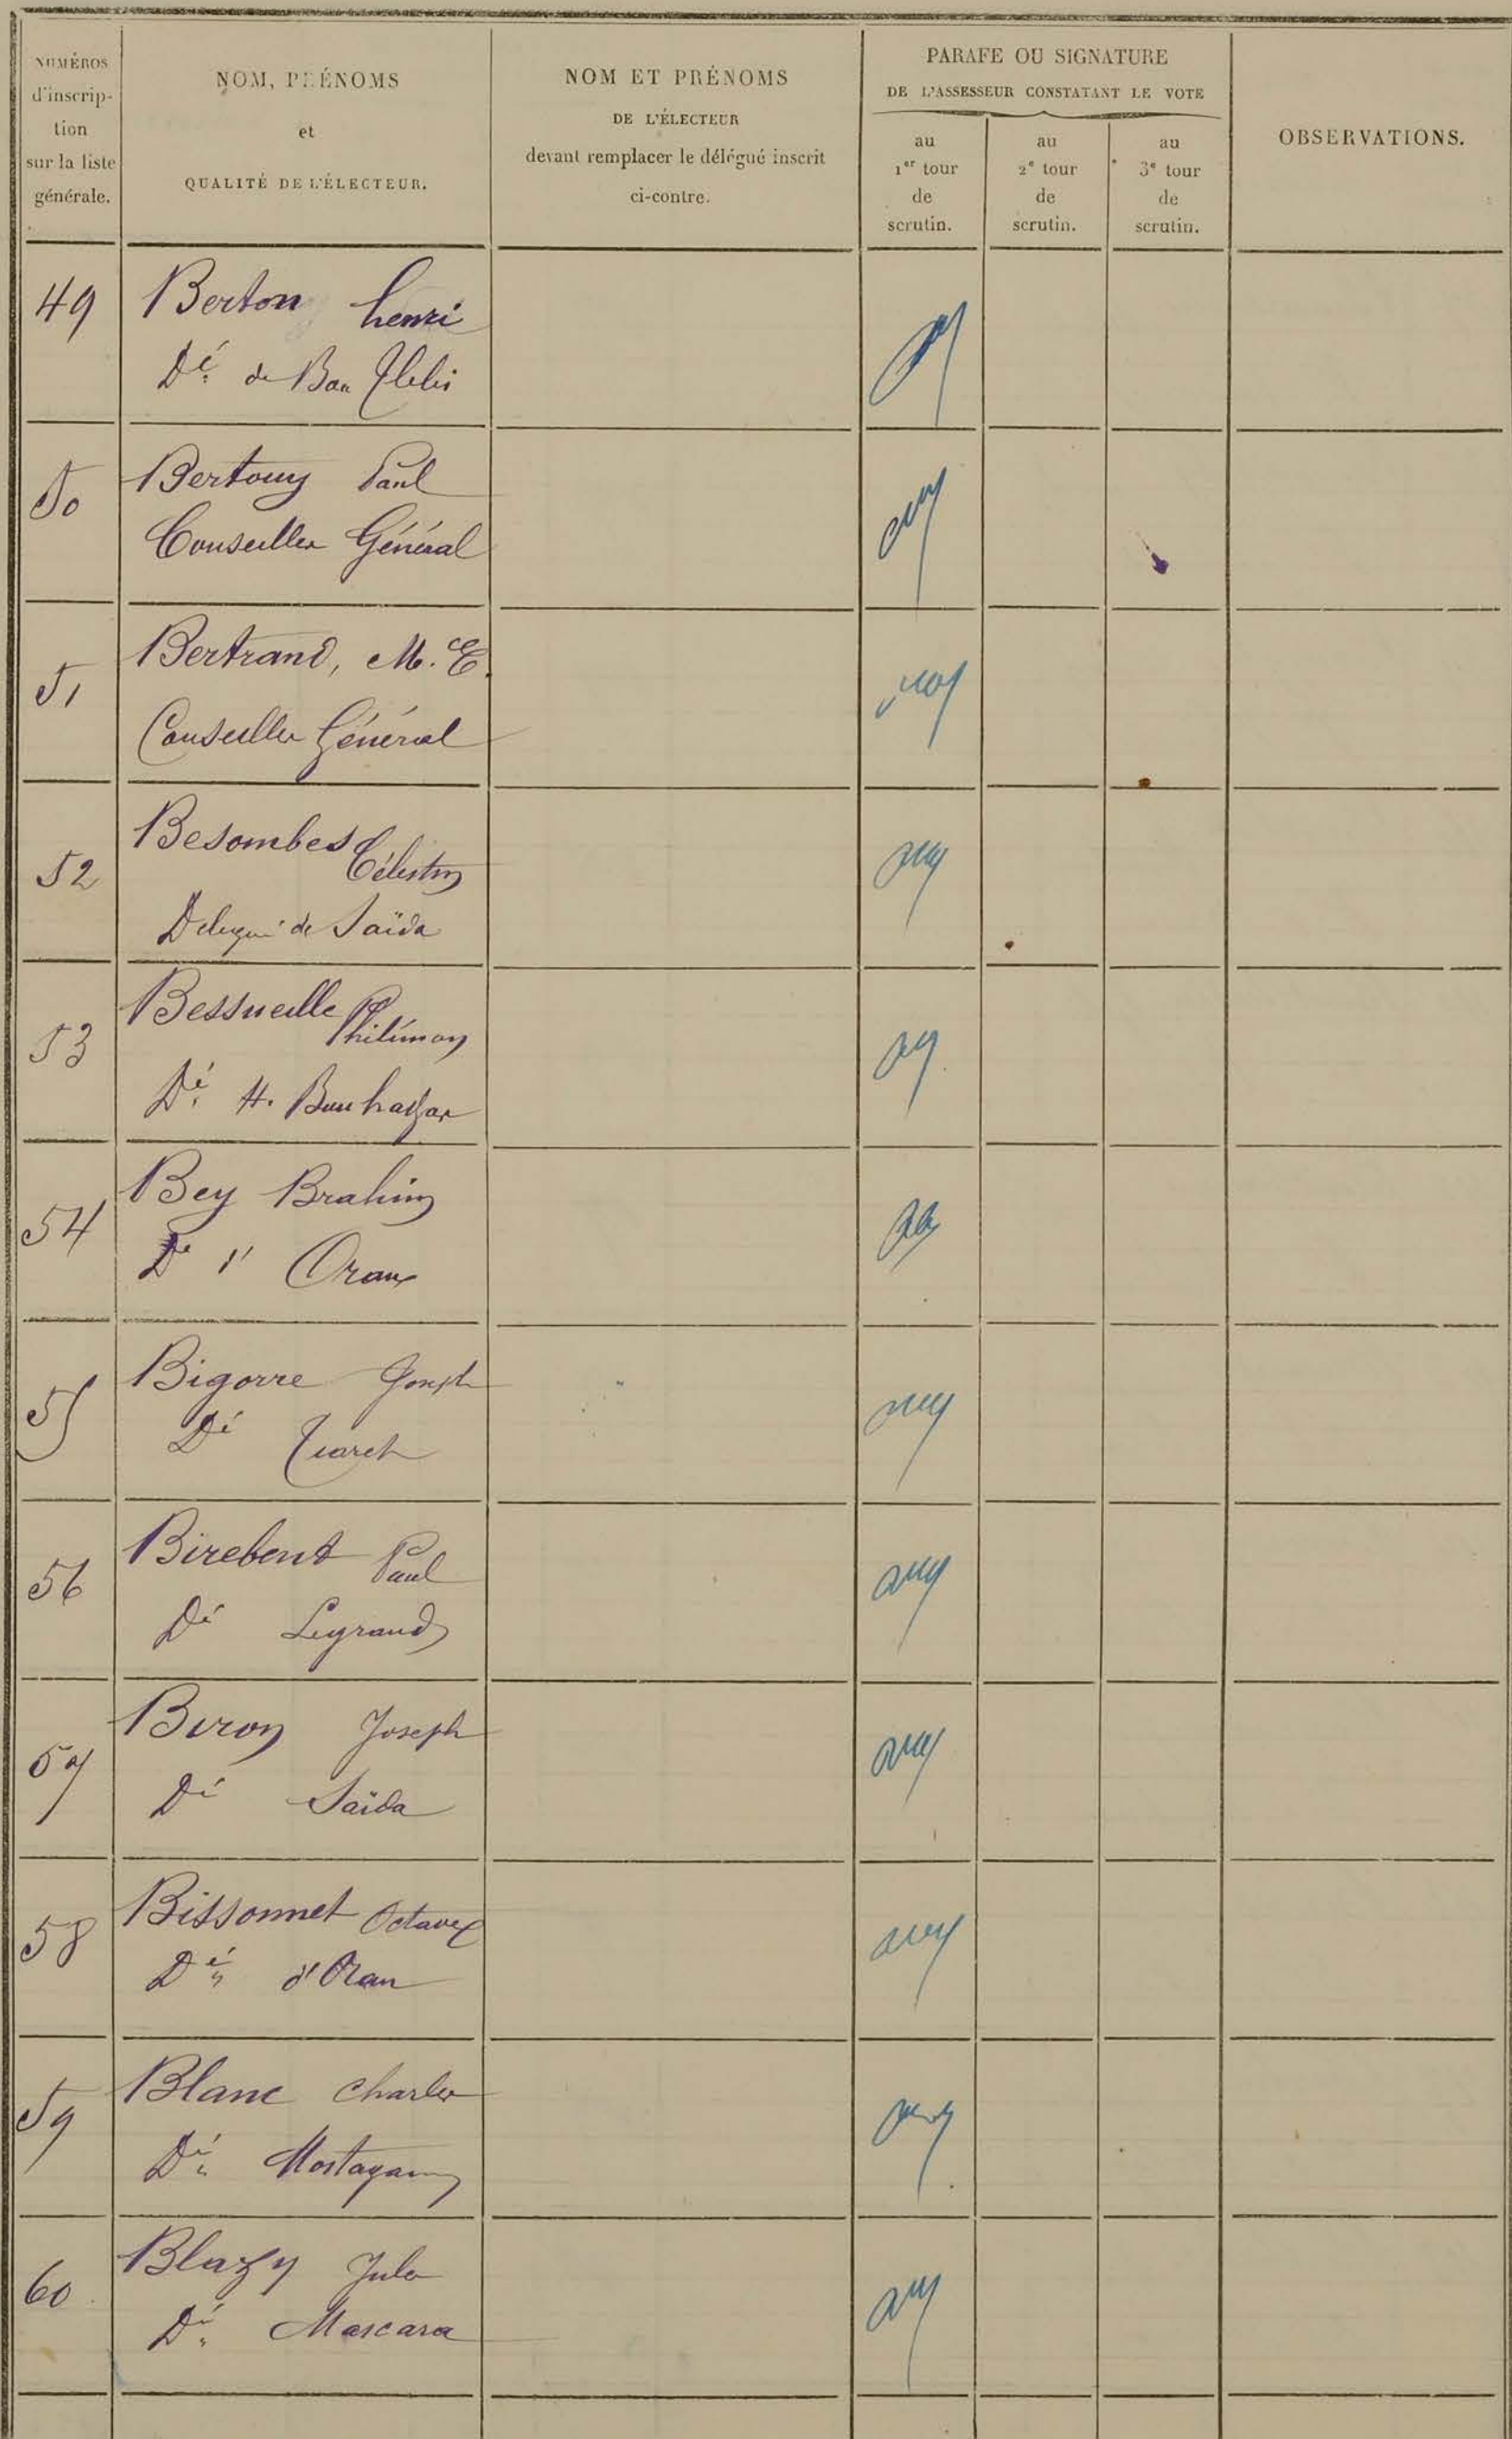 NUMÉROS
d'inscrip-
tion
sur la liste
générale.
NOM, PRÉNOMS
et
QUALITÉ DE L'ÉLECTEUR.
NOM ET PRÉNOMS
DE L'ÉLECTEUR
devant remplacer le délégué inscrit
ci-contre.
PARAFE OU SIGNATURE
DE L'ASSESSEUR CONSTATANT LE VOTE
au
1er tour
de
scrutin.
au
2e tour
de
scrutin.
au
3e tour
de
scrutin.
OBSERVATIONS.
49 Berton henri
Dé. de Bou Tlelis
50 Bertouy Paul
Conseiller Général
51 Bertrand, M. E.
Conseiller Général
52 Besombes
Célestin
Délégué de Saïda
53 Bessueille
Philémon
Dé. H. Bou hadjar
54 Bey Brahim
Dé d' Oran
55 Bigorre Joseph
Dé Tiaret
56 Birebent Paul
Dé Legrand
57 Biron Joseph
Dé Saïda
58 Bissonnet Octave
Dé d'Oran
59 Blanc Charles
Dé Mostagan
60 Blazy Jules
Dé Mascara